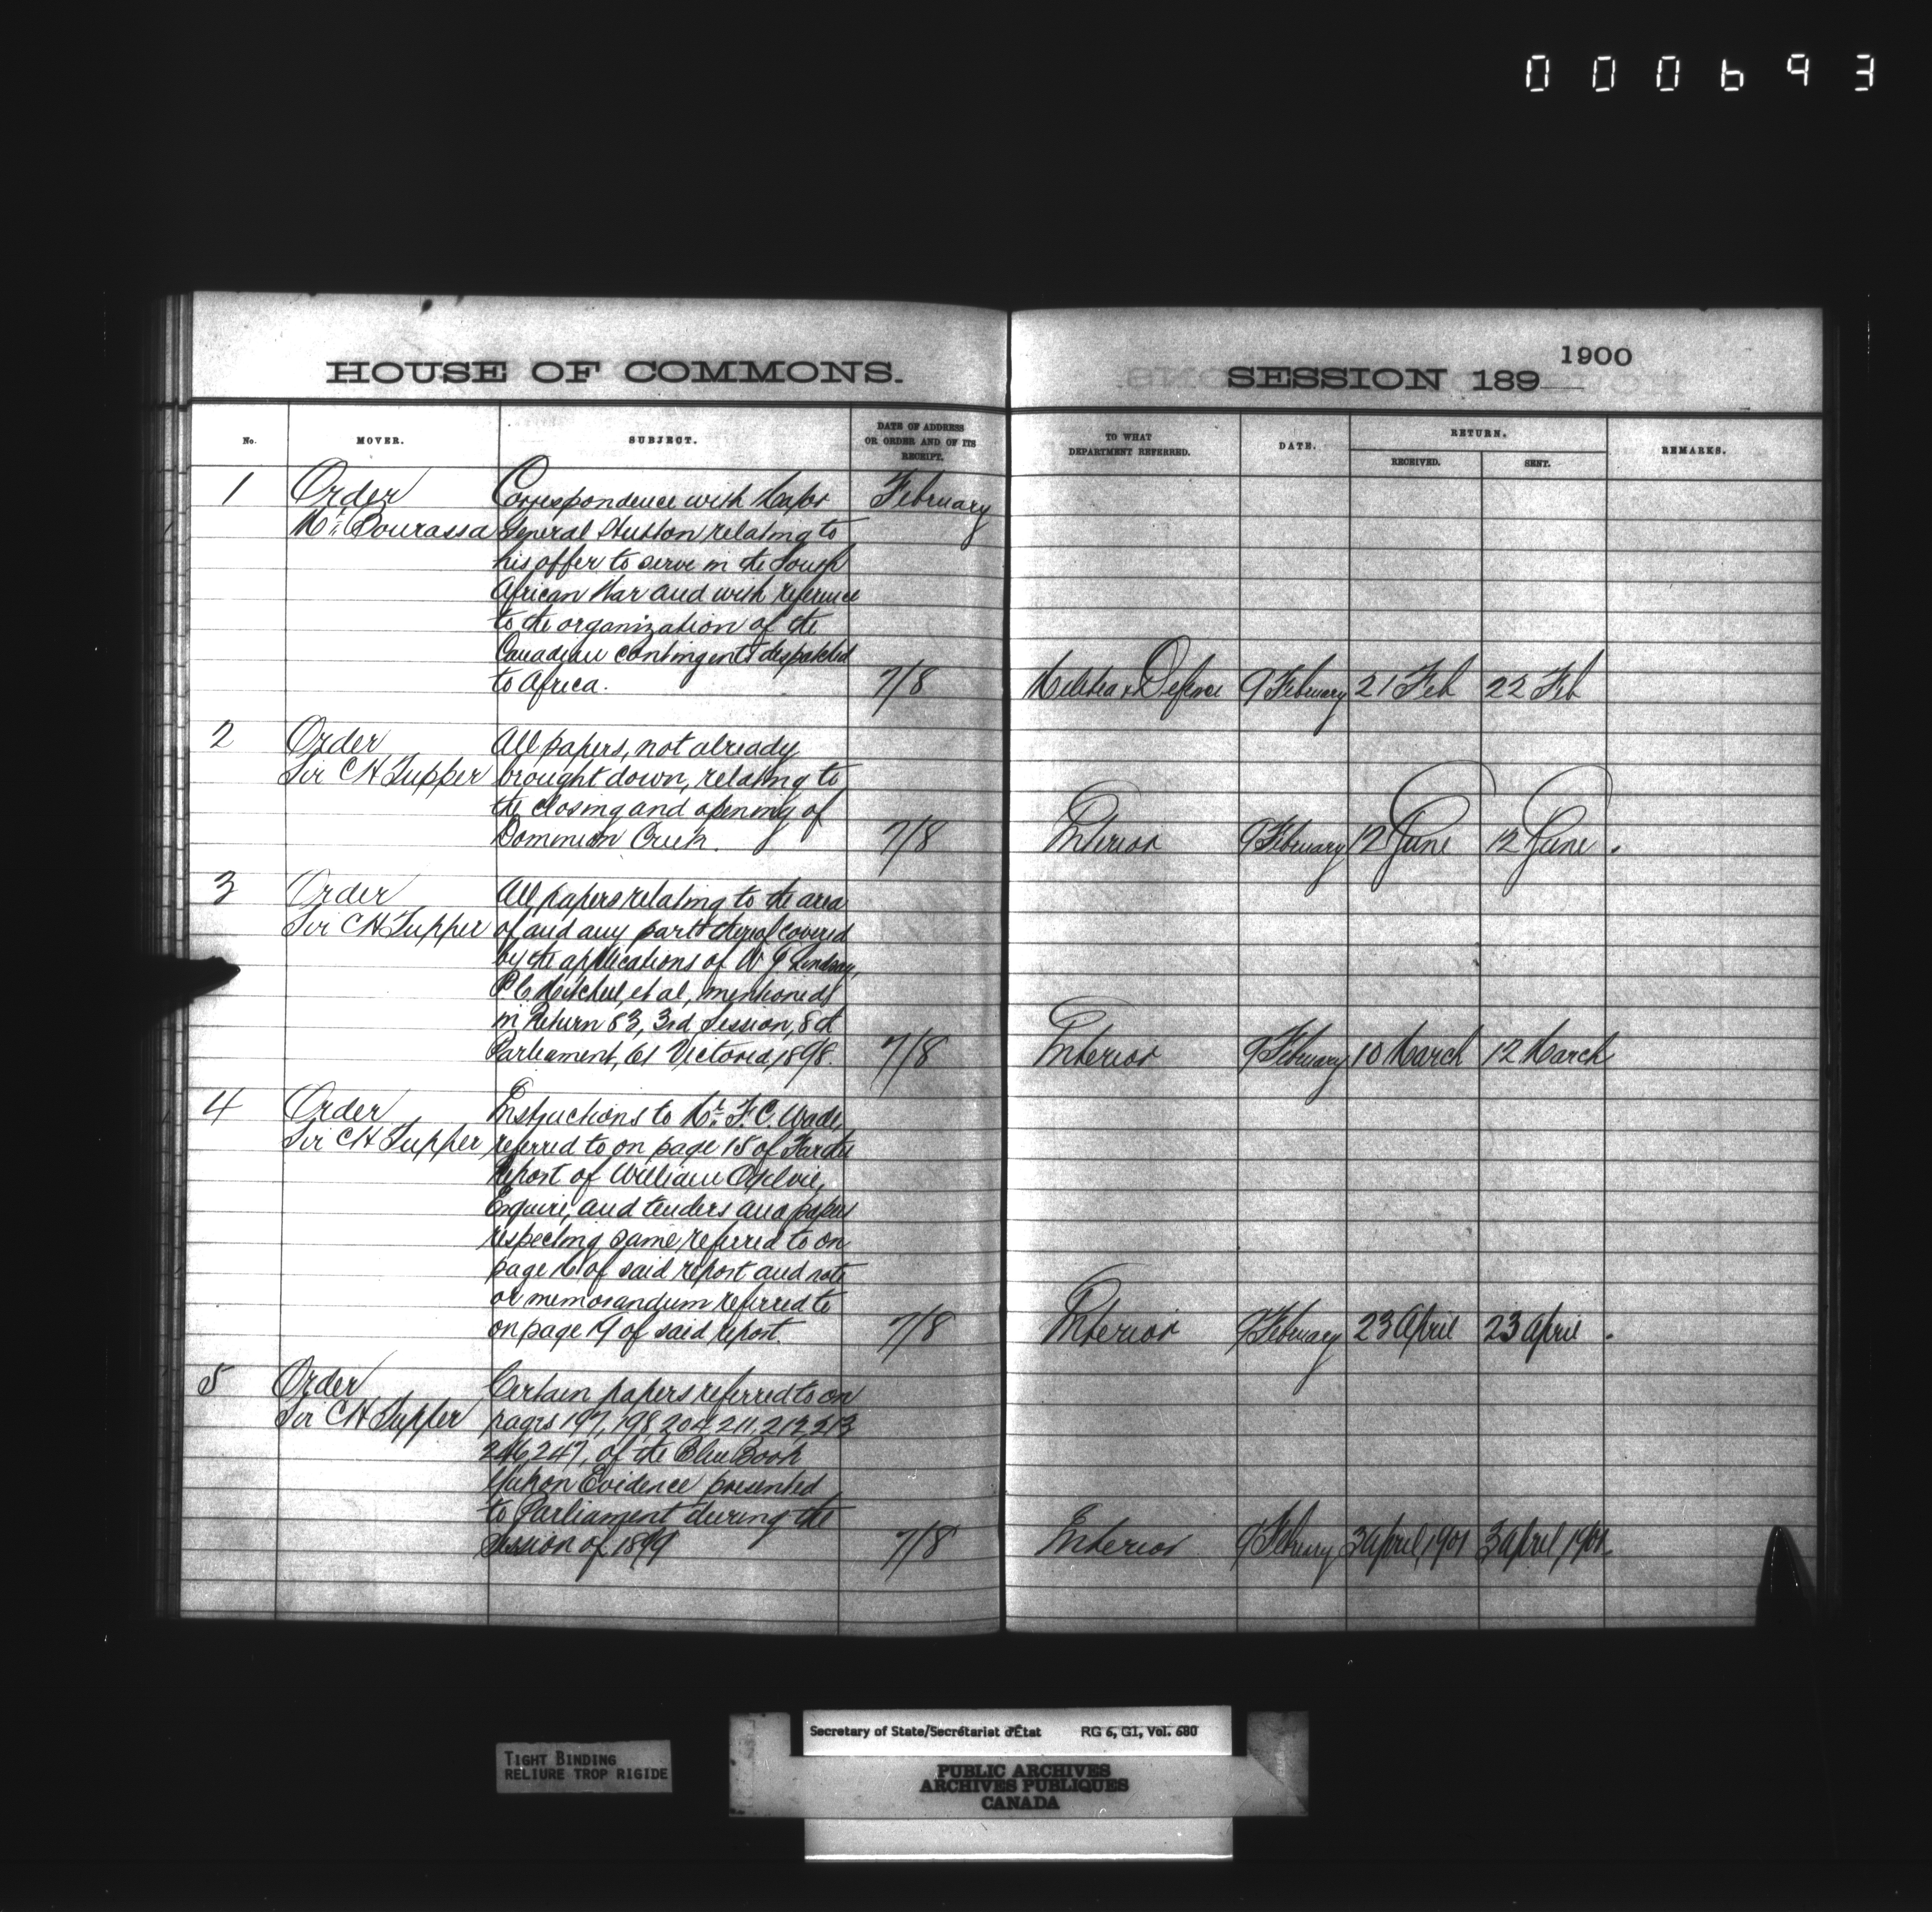 000693
HOUSE OF COMMONS.
No.
MOVER.
SUBJECT.
DATE OF ADDRESS
OR ORDER AND OF ITS
RECEIPT.
1
Order
Mr. Bourassa
Correspondence with Major
General Hutton relating to
his offer to serve in the South
African War and with reference
to the organization of the
Canadian Contingents despatched
to Africa.
February
7/8
2
Order
Sir CH Tupper
All papers, not already
brought down, relating to
the closing and opening of
Dominion Creek.
7/8
3
Order
Sir CH Tupper
All papers relating to the area
of and any part thereof covered
by the applications of Lindsay,
Mitchell, et al, mentioned
in Return 83, 3rd Session, 8th
Parliament, 61 Victoria, 1898.
7/8
4
Order
Sir CH Tupper
Instructions to Mr. F.C. Wade,
referred to on page 15 of
Report of William Ogilvie,
Esquire, and tenders and papers
respecting same referred to on
page 16 of said report and note
or memorandum referred to
on page 19 of said report.
7/8
5
Order
Sir CH Tupper
Certain papers referred to on
pages 197, 198, 204, 211, 212, 213
246, 247, of the Blue Book
Yukon Evidence presented
to Parliament during the
Session of 1899
7/8
SESSION 189
1900
TO WHAT
DEPARTMENT REFERRED.
DATE.
RETURN.
RECEIVED.
SENT.
REMARKS.
Militia & Defence 9 February 21 Feb 22 Feb
Interior 9 February 12 June 12 June.
Interior 9 February 10 March 12 March
Interior 9 February 23 April 23 April.
Interior 9 February 3 April, 1901 3 April, 1901.
TIGHT BINDING
RELIURE TROP RIGIDE
Secretary of State/Secrétariat d'État RG 6, G1, Vol. 680
PUBLIC ARCHIVES
ARCHIVES PUBLIQUES
CANADA